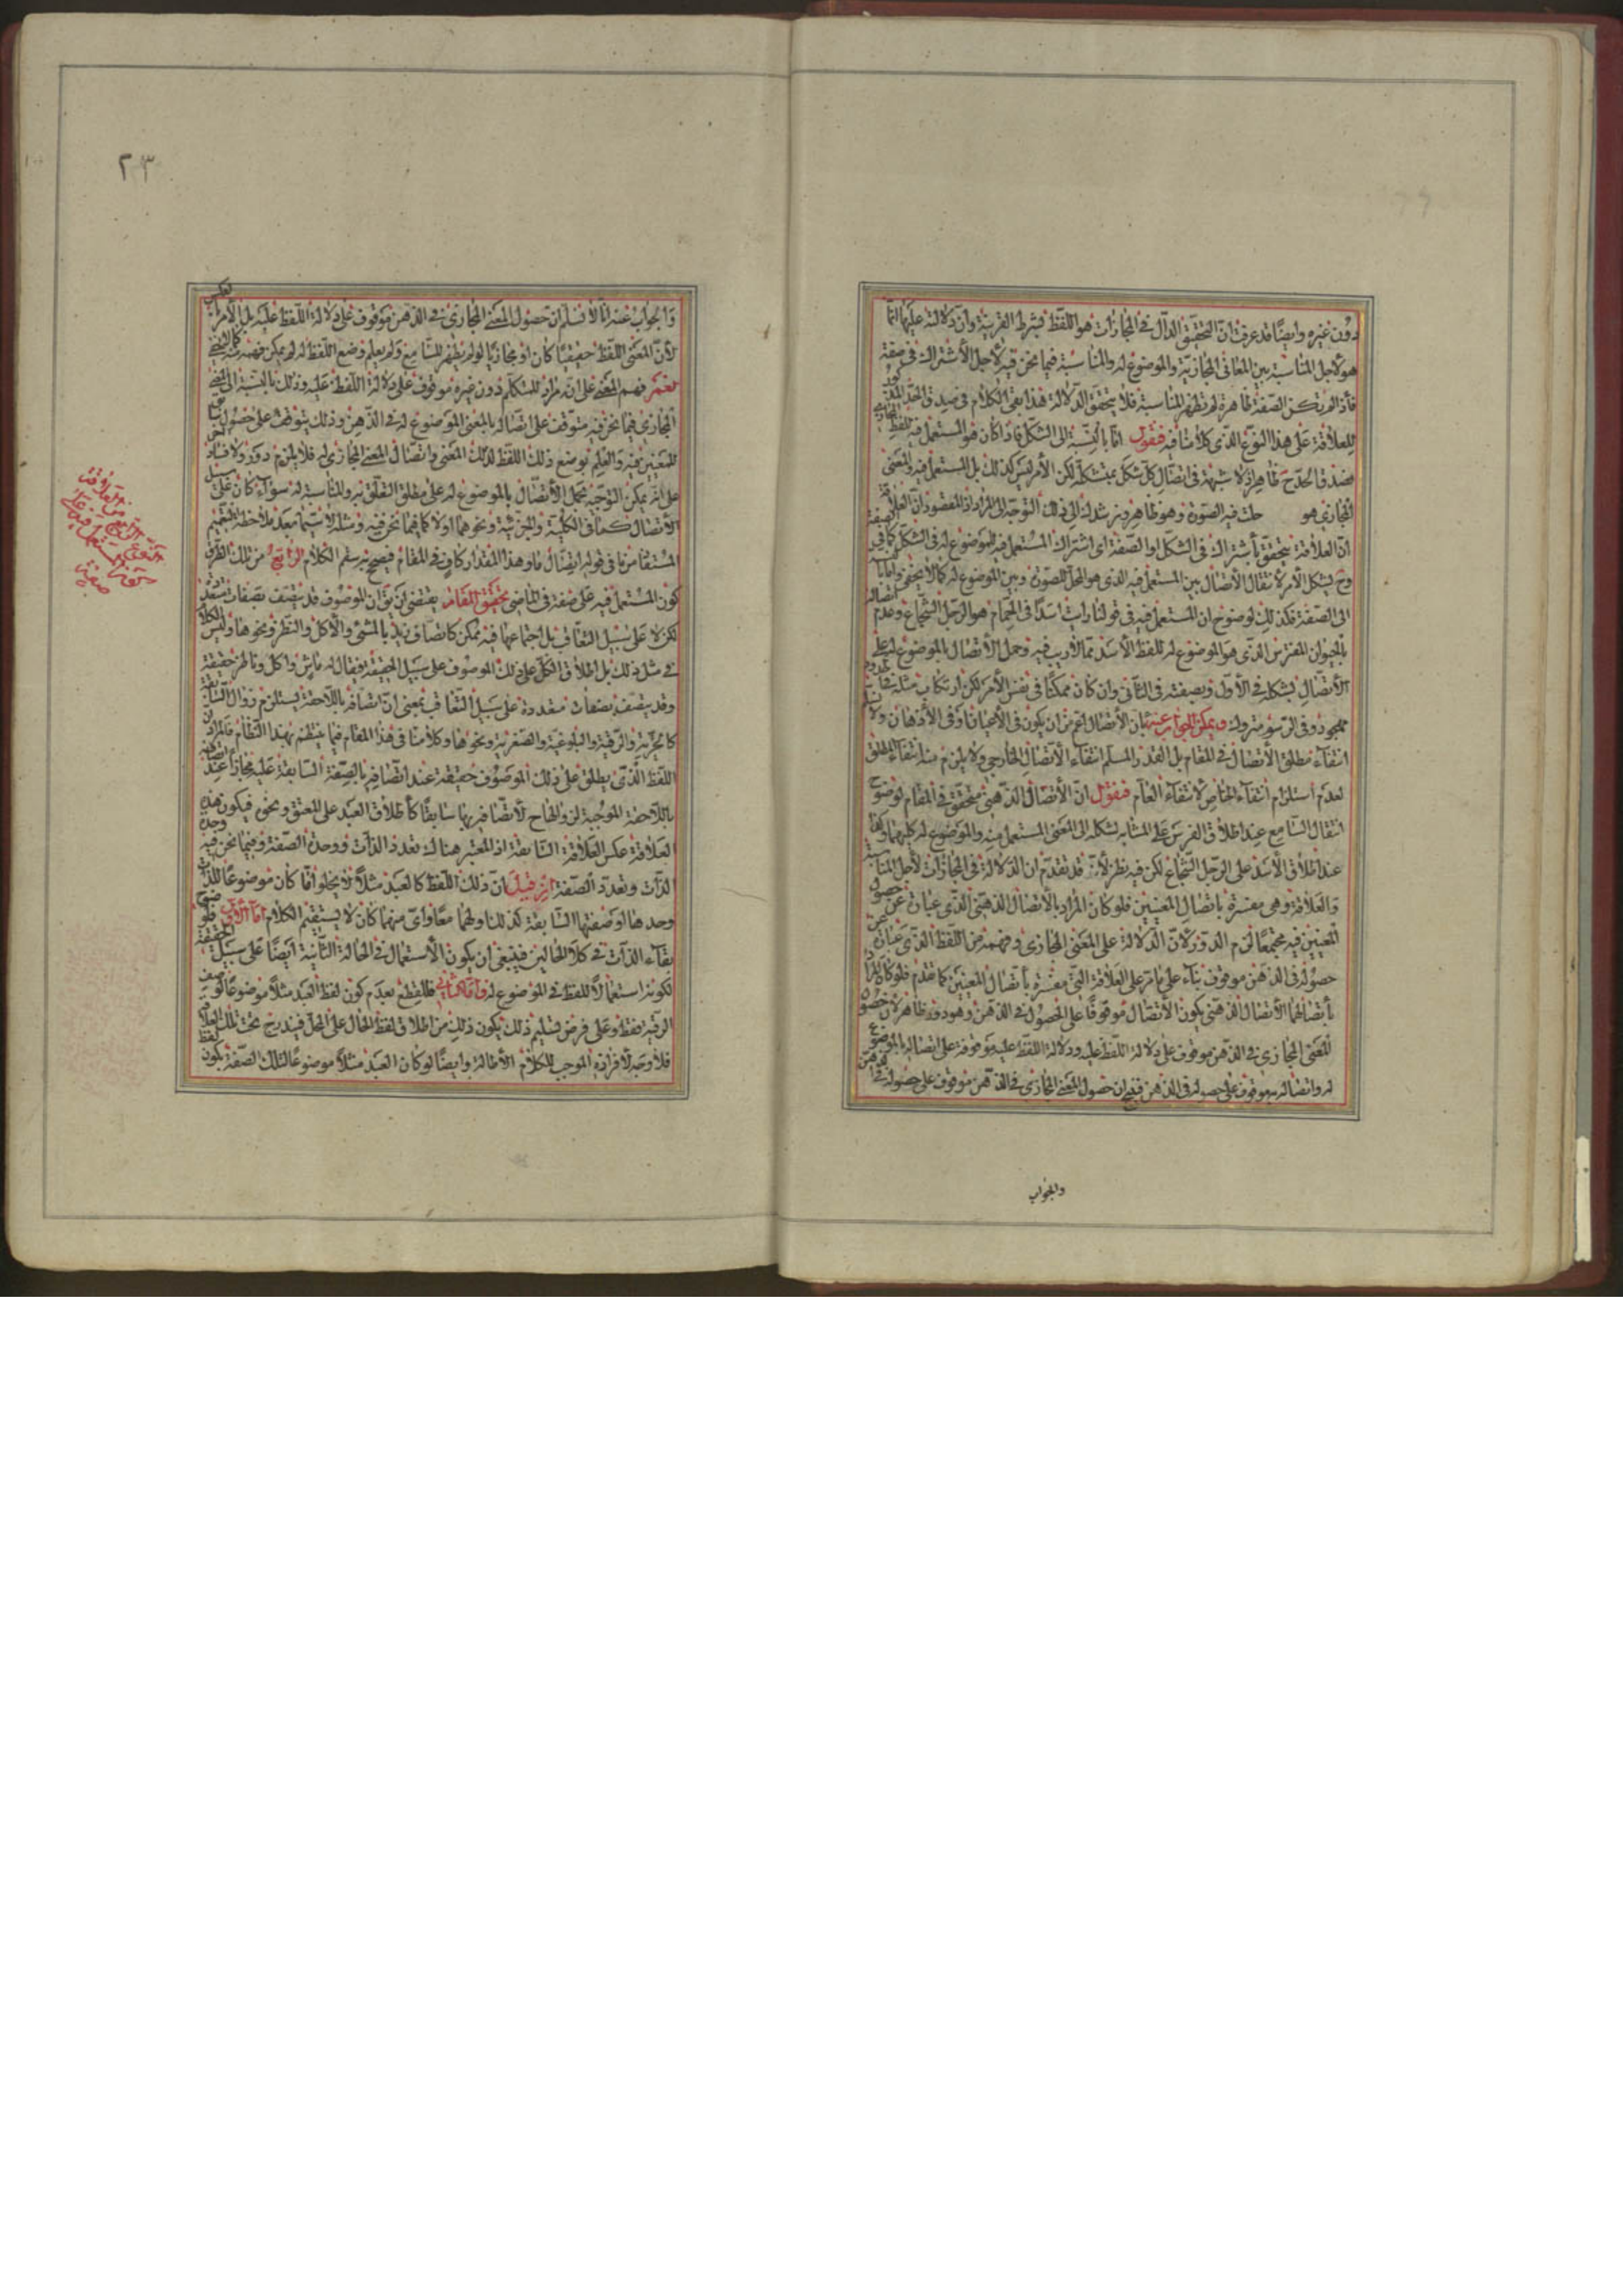 دون غيره وايضًا قد عرفت انّ التحقيق الدالّ في المجازات هو اللّفظ بشرط القرينة وانّ دلالته عليها انّما
هو لاجل المناسبة بين المعاني المجازيّة والموضوع له والمناسبة فيما نحن فيه لاجل الاشتراك في صفة
فاذا لم تكن الصّفة ظاهرة لم تظهر المناسبة فلا يتحقّق الدّلالة هذا بقي الكلام في صدق الحدّ
للعلاقة على هذا النوع الذي كلامنا فيه فنقول امّا بالنّسبة الى الشكل فاذا كان هو المستعمل فيه للفظ
فصدق الحدّ ح ظاهر اذ لا شبهة في اتصال كلّ شكل بمتشكله لكن الأمر ليس كذلك بل المستعمل فيه والمعنى
المجازي هو حلّت فيه الصورة وهو ظاهر ويرشدك الى ذلك التوجّه الى المراد اذ المقصود انّ العلاقة
انّ العلاقة يتحقّق باشتراك في الشكل او الصّفة اى اشتراك المستعمل فيه للموضوع له في الشكل كما في
وح يشكل الأمر لانتفاء الاتصال بين المستعمل فيه الذي هو المحلّ للصورة وبين الموضوع له كما لا يخفى وامّا
الى الصّفة فكذلك لوضوح ان المستعمل فيه في قولنا رايت اسدًا في الحمّام هو الرّجل الشّجاع وعدم
بالحيوان المفترس الذي هو الموضوع له للفظ الأسد ممّا لا ريب فيه وحمل الاتصال بالموضوع له على
الاتصال بشكله في الأول وبصفته في الثاني وان كان ممكنًا في نفس الأمر لكن ارتكاب مثله في
مهجور وفي الرّسوم متروك ويمكن الجواب عنه بان الاتصال اعم من ان يكون في الأعيان او في الأذهان ولا
انتفاء مطلق الاتصال في المقام بل القدر المسلّم انتفاء الاتصال الخارجي ولا يلزم منه انتفاء المطلق
لعدم استلزام انتفاء الخاص لانتفاء العام فنقول انّ الاتصال الذهني متحقّق في المقام لوضوح
انتقال السّامع عند اطلاق الفرس على المشابه لشكله الى المعنى المستعمل فيه والموضوع له كليهما وكذا
عند اطلاق الأسد على الرّجل الشّجاع لكن فيه نظر لانّه قد تقدّم ان الدّلالة في المجازات لاجل المناسبة
والعلاقة وهي مفسّرة باتصال المعنيين فلو كان المراد بالاتصال الذهني الذي عبارة عن حصول
المعنيين فيه مجتمعًا لزم الدّور لانّ الدّلالة على المعنى المجازي وفهمه من اللّفظ الذي عبارة عن
حصوله في الذهن موقوف بناء على ما مرّ على العلاقة التي مفسّرة باتصال المعنيين كما تقدم فلو كان المراد
باتصالهما الاتصال الذهني يكون الاتصال موقوفًا على الحصول في الذهن وهو دور ظاهر لان حصول
المعنى المجازي في الذهن موقوف على دلالة اللّفظ عليه ودلالة اللّفظ عليه موقوفة على اتصاله بالموضوع
له واتصاله به موقوف على حصوله في الذهن فينتج ان حصول المعنى المجازي في الذهن موقوف على حصوله في الذهن
والجواب
٢٣
والجواب عنه انّا لا نسلّم ان حصول المعنى المجازي في الذهن موقوف على دلالة اللّفظ عليه بل الأمر بالعكس
لانّ المعنى اللّفظ حقيقيًا كان او مجازيًا لو لم يظهر للسّامع ولم يعلم وضع اللّفظ له لم يمكن فهمه
نعم فهم المعنى على انّه مراد للمتكلّم دون غيره موقوف على دلالة اللّفظ عليه وذلك بالنّسبة الى المعنى
المجازي فيما نحن فيه متوقّف على اتصاله بالمعنى الموضوع له في الذّهن وذلك يتوقّف على حصول
المعنيين فيه والعلم بوضع ذلك اللّفظ لذلك المعنى واتصال المعنى المجازي له فلا يلزم دور ولا فساد
على انّه يمكن التوجيه بحمل الاتصال بالموضوع له على مطلق التعلّق به والمناسبة له سواء كان على سبيل
الاتصال كما في الكليّة والجزئيّة ونحوهما او لا كما فيما نحن فيه ومثله لا سيّما بعد ملاحظة التعميم
المستفاد من ما في قوله اتصال ما وهذا المقدار كاف في المقام فيصحّ به رسم الكلام الرابع من تلك الطرق
كون المستعمل فيه على صفة في الماضي تحقيق المقام يقتضي ان يقال ان الموصوف قد يتّصف بصفات متعدّدة
لكن لا على سبيل التعاقب بل اجتماعها فيه ممكن كاتصاف زيد بالمشي والأكل والنظر ونحوها وليس الكلام
في مثل ذلك بل اطلاق الكلّ على ذلك الموصوف على سبيل الحقيقة فيقال له ماش وآكل وناظر حقيقة
وقد يتّصف بصفات متعددة على سبيل التعاقب بمعنى انّ اتصافه باللاحقة يستلزم زوال السّابقة
كالحريّة والرّقيّة والبلوغيّة والصّغريّة ونحوها وكلامنا في هذا المقام فيما ينتظم بهذا النّظام فالمراد انّ
اللّفظ الّذي يطلق على ذلك الموصوف حقيقة عند اتصافه بالصّفة السّابقة عليه مجازًا عند اتصافه
باللاحقة الموجبة لزوالها ح لاتصافه بها سابقًا كاطلاق العبد على المعتق ونحوه فيكون هذه
العلاقة عكس العلاقة السّابقة اذ المعتبر هناك تعدد الذّات ووحدة الصّفة وفيما نحن فيه وحدة
الذّات وتعدّد الصّفة ان قيل انّ ذلك اللّفظ كالعبد مثلًا لا يخلو امّا كان موضوعًا للذّات
وحدها او صفتها السّابقة كذلك او لهما معًا وايّ منها كان لا يستقيم الكلام امّا الأوّل فلوضوح
بقاء الذّات في كلا الحالين فينبغي ان يكون الاستعمال في الحالة الثّانية ايضًا على سبيل الحقيقة
لكونه استعمالًا للّفظ في الموضوع له وامّا الثاني فللقطع بعدم كون لفظ العبد مثلًا موضوعًا لوصف
الرقيّة فقط وعلى فرض تسليم ذلك يكون ذلك من اطلاق لفظ الحال على المحلّ فيندرج تحت تلك العلاقة
فلا وجه لافرازه الموجب للكلام الاطالة وايضًا لو كان العبد مثلًا موضوعًا لتلك الصّفة يكون لفظ
النّوع الرّابع من العلاقة
كون المستعمل فيه على
صفة